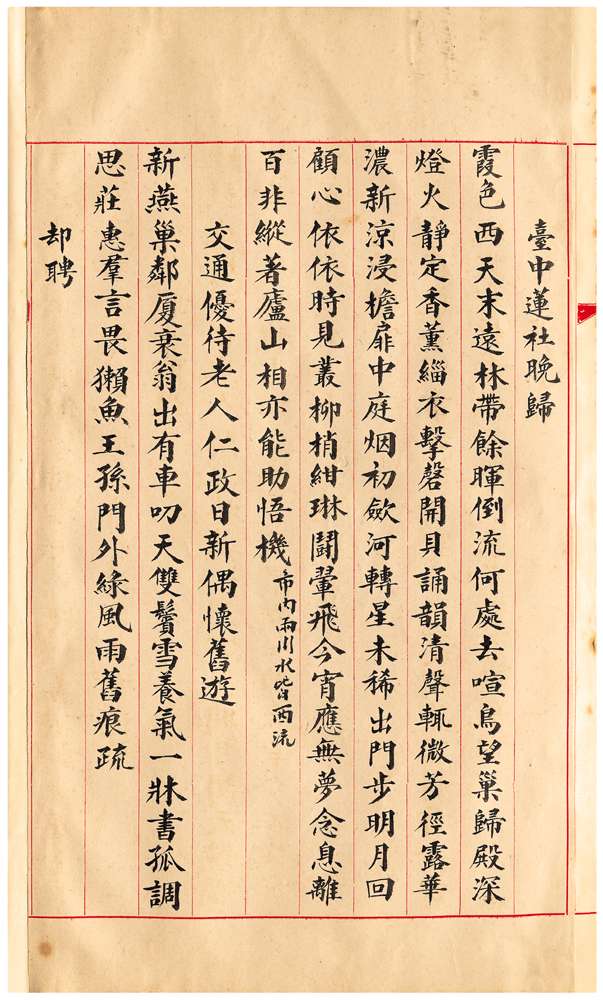 臺中蓮社晚歸
霞色西天末遠林帶餘暉倒流何處去喧鳥望巢歸殿深
燈火靜定香薰緇衣擊磬開貝誦韻清聲輒微芳徑露華
濃新涼浸檐扉中庭烟初斂河轉星未稀出門步明月回
顧心依依時見叢柳梢紺琳鬬翬飛今宵應無夢念息離
百非縱著廬山相亦能助悟機市內兩川水皆西流
交通優待老人仁政日新偶懷舊遊
新燕巢鄰厦衰翁出有車叨天雙鬢雪養氣一牀書孤調
思莊惠羣言畏獺魚王孫門外綠風雨舊痕疏
却聘